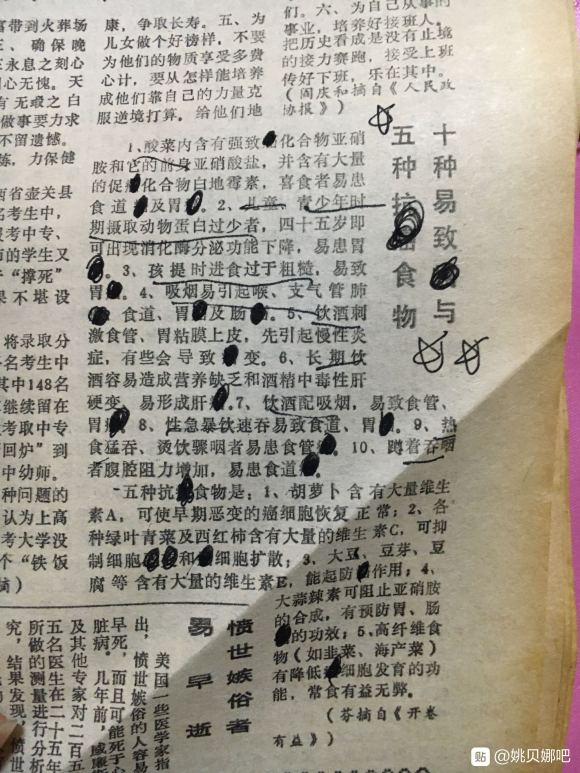 富带到火葬场
、确保晚
永息之刻心
心无愧。天
有无瑕之白
做事要力求
不留遗憾。
炼，力保健
康，争取长寿。五、为
儿女做个好榜样，不要
为他们的物质享受多费
心计，要从怎样能培养
成他们靠自己的力量克
服逆境打算。给他们地
们。六、为自己从事的
事业，培养好接班人。
把历史看成是没有止境
的接力赛跑，接受上班
传好下班，乐在其中。
（阎庆和摘自《人民政
协报》）
十种易致与
五种抗食物
1、酸菜内含有强致化合物亚硝
胺和它的前身亚硝酸盐，并含有大量
的促化合物白地霉素，喜食者易患
食道及胃。2、儿童、青少年时
期摄取动物蛋白过少者，四十五岁即
可出现消化酶分泌功能下降，易患胃
。3、孩提时进食过于粗糙，易致
胃。4、吸烟易引起喉、支气管肺
食道、胃及肠。5、饮酒刺
激食管、胃粘膜上皮，先引起慢性炎
症，有些会导致变。6、长期饮
酒容易造成营养缺乏和酒精中毒性肝
硬变，易形成肝。7、饮酒配吸烟，易致食管、
胃。8、性急暴饮速吞易致食道、胃。9、热
食猛吞、烫饮骤咽者易患食管。10、蹲着吞咽
者腹腔阻力增加，易患食道。
五种抗食物是：1、胡萝卜含有大量维生
素A，可使早期恶变的癌细胞恢复正常；2、各
种绿叶青菜及西红柿含有大量的维生素C，可抑
制细胞和细胞扩散；3、大豆、豆芽、豆
腐等含有大量的维生素E，能起防作用；4、
大蒜辣素可阻止亚硝胺
的合成，有预防胃、肠
的功效；5、高纤维食
物（如韭菜、海产菜）
有降低细胞发育的功
能，常食有益无弊。
（芬摘自《开卷
有益》）
西省壶关县
名考生中，
报考中专、
的学生又
“撑死”
果不堪设
将录取分
名考生中
其中148名
继续留在
考取中专
回炉”到
中幼师。
种问题的
认为上高
考大学没
个“铁饭
摘）
愤世嫉俗者
易早逝
美国一些医学家指
出，愤世嫉俗的人容易
早死，而且可能死于心
脏病。几年前，威廉斯
及其他专家对二百五
五名医生在二十五年
所做的测量进行分析
究，结果发现，愤世
贴 @姚贝娜吧